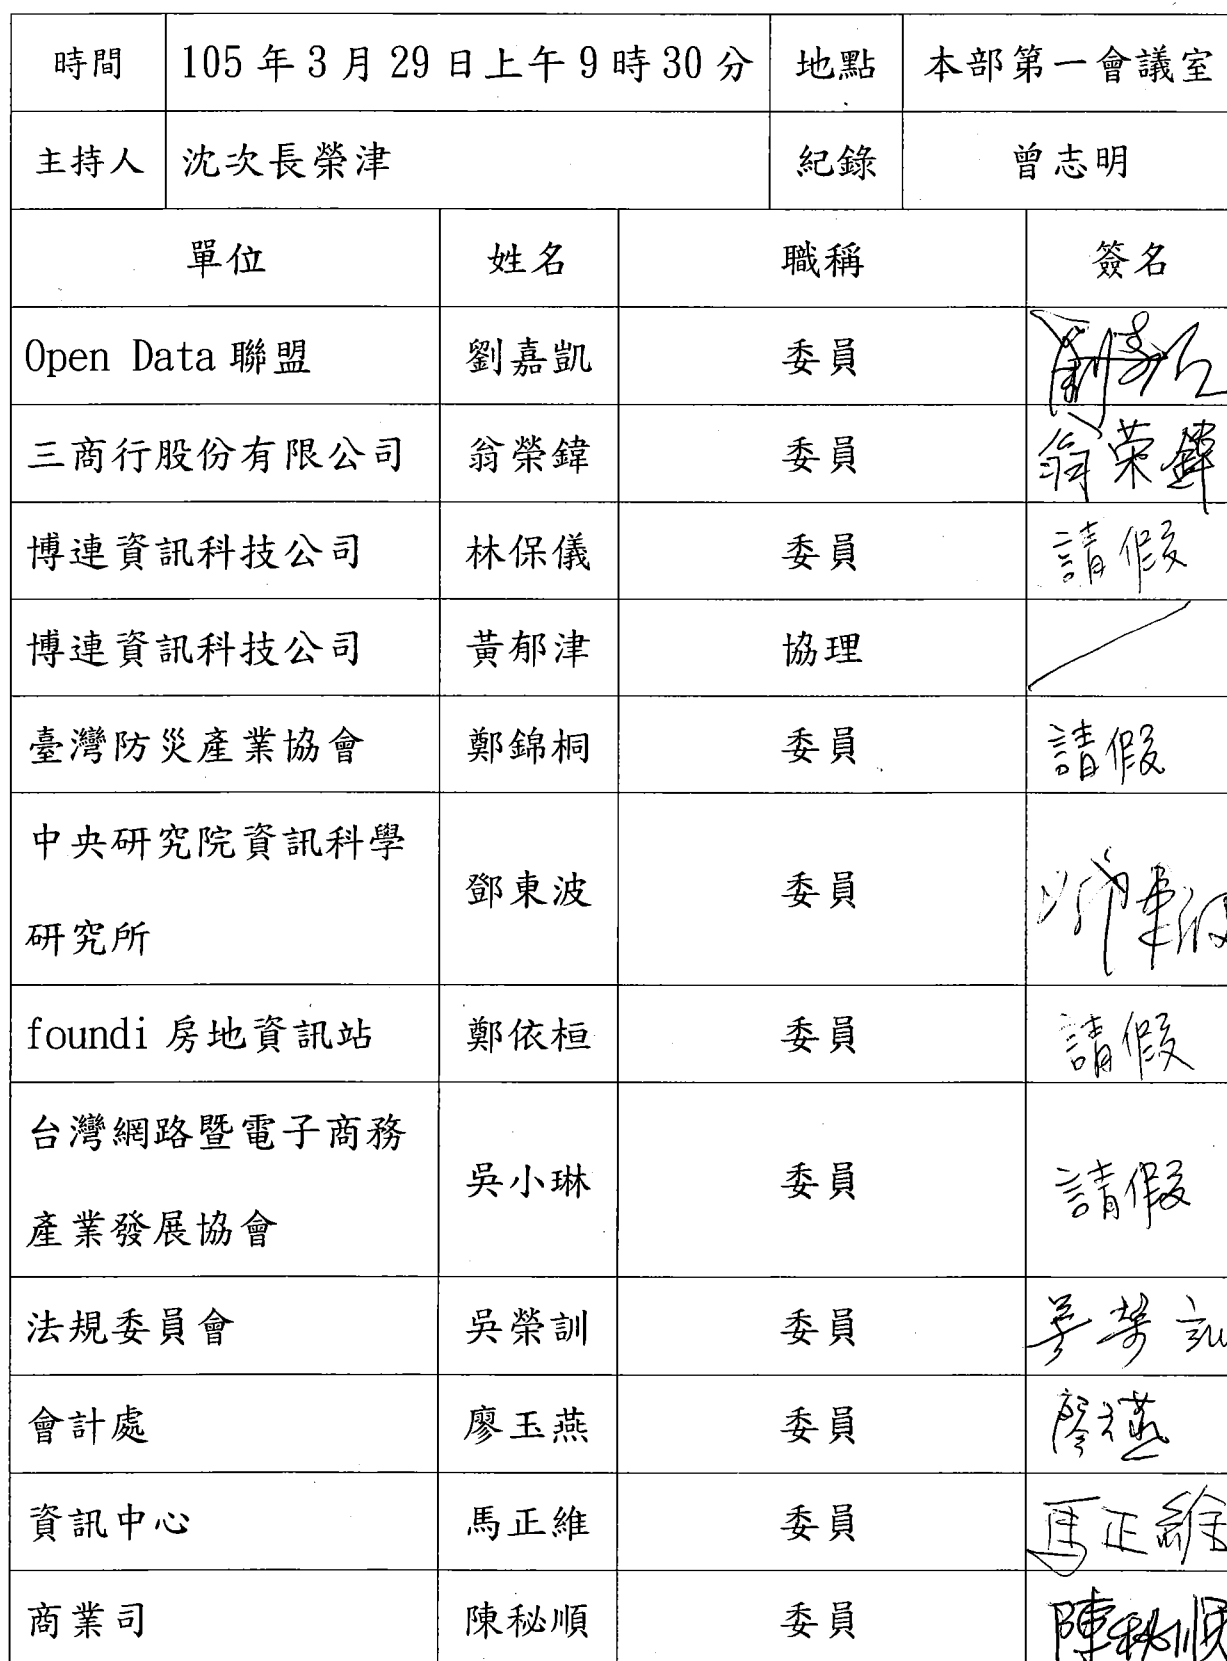 時間 105年3月29日上午9時30分 地點 本部第一會議室
主持人 沈次長榮津 紀錄 曾志明
單位 姓名 職稱 簽名
Open Data聯盟 劉嘉凱 委員
三商行股份有限公司 翁榮鍏 委員 翁荣鍏
博連資訊科技公司 林保儀 委員 請假
博連資訊科技公司 黃郁津 協理
臺灣防災產業協會 鄭錦桐 委員 請假
中央研究院資訊科學
研究所 鄧東波 委員
foundi房地資訊站 鄭依桓 委員 請假
台灣網路暨電子商務
產業發展協會 吳小琳 委員 請假
法規委員會 吳榮訓 委員 吳榮訓
會計處 廖玉燕 委員 廖玉燕
資訊中心 馬正維 委員 馬正維
商業司 陳秘順 委員 陳秘順